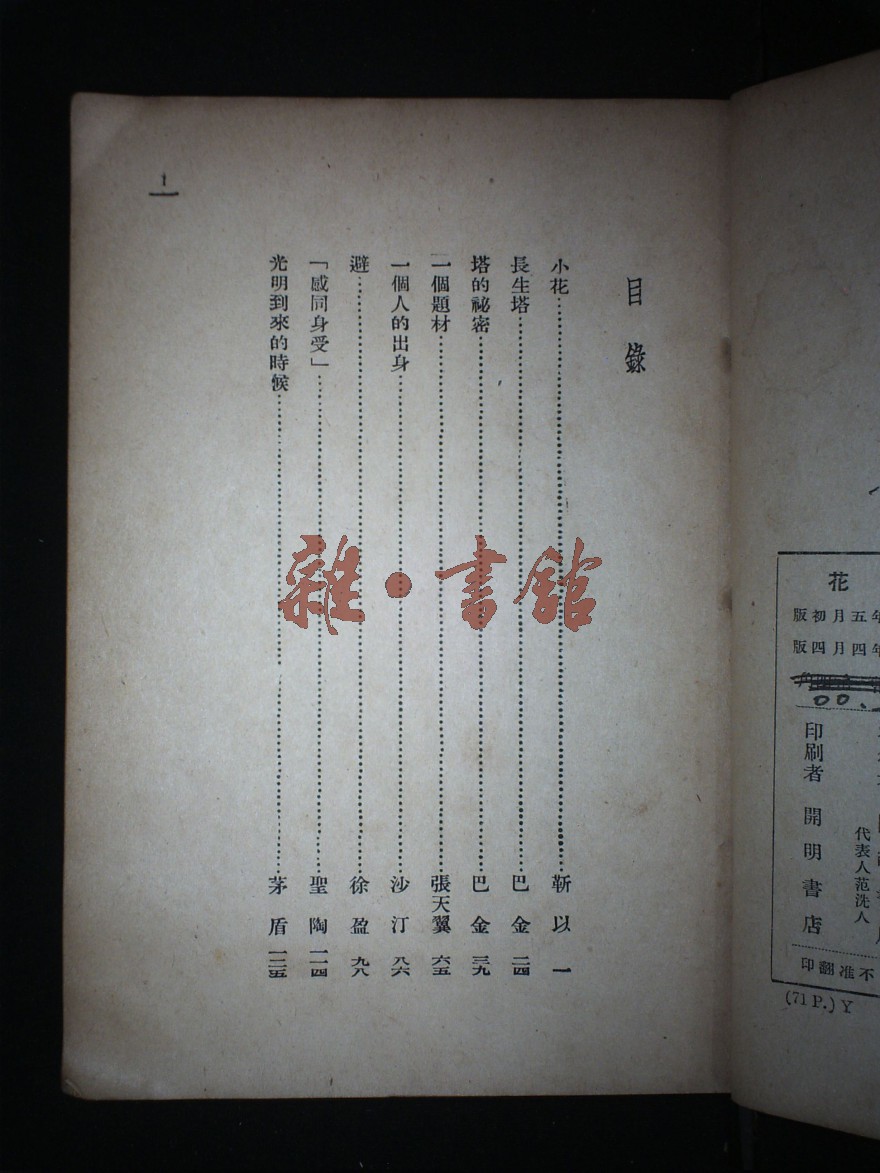 目錄
小花……靳以 一
長生塔……巴金 二四
塔的祕密……巴金 三九
一個題材……張天翼 六五
一個人的出身……沙汀 八六
避……徐盈 九八
「感同身受」……聖陶 一一四
光明到來的時候……茅盾 一三五
1
雜·書館
花
年五月初版
年四月四版
00.
代表人范洗人
印刷者 開明書店
不准翻印
(71 P.) Y